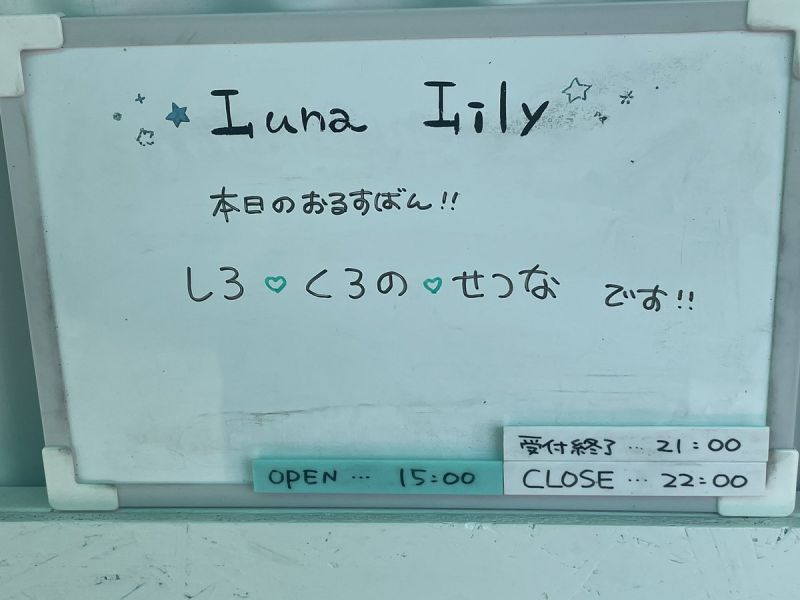 Luna Lily
本日のおるすばん!!
しろ♡くろの♡せつな です!!
受付終了…21:00
OPEN…15:00
CLOSE…22:00